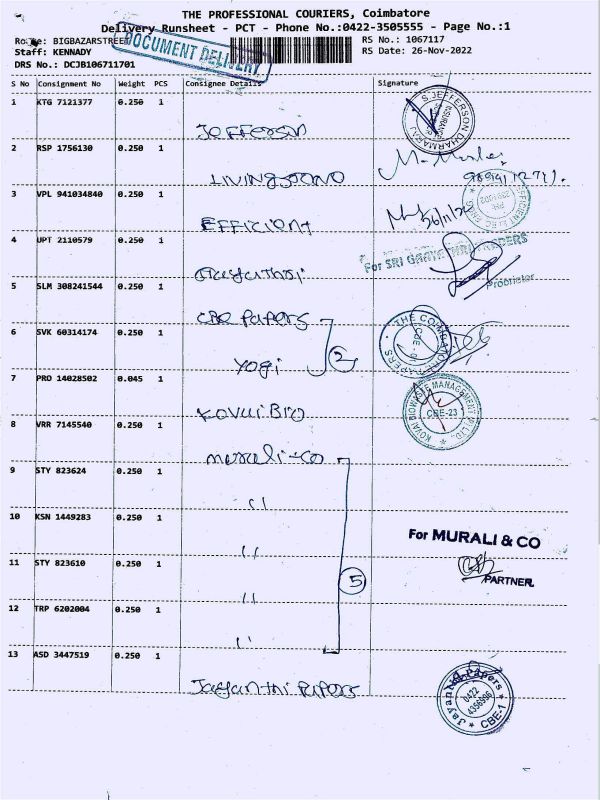 THE PROFESSIONAL COURIERS, Coimbatore
Delivery Runsheet - PCT - Phone No.:0422-3505555 - Page No.:1
Route: BIGBAZARSTREET
DOCUMENT DELIVERY
RS No.: 1067117
Staff: KENNADY
RS Date: 26-Nov-2022
DRS No.: DCJB106711701
S No Consignment No Weight PCS Consignee Details Signature
1 KTG 7121377 0.250 1
Jefferson
S. JEFFERSON DHARMARAJ
2 RSP 1756130 0.250 1
LIVINGSTONO
3 VPL 941034840 0.250 1
EFFICIENT
26/11/22
4 UPT 2110579 0.250 1
For SRI GAAYATHRI TRADERS
Proprietor
5 SLM 308241544 0.250 1
CBE Papers
6 SVK 60314174 0.250 1
Yogi
2
THE COIMBATORE PAPERS
7 PRO 14028502 0.045 1
KOVAI BIO
KOVAI BIO WASTE MANAGEMENT PVT LTD.,
CBE-23
8 VRR 7145540 0.250 1
murali-co
9 STY 823624 0.250 1
"
10 KSN 1449283 0.250 1
"
For MURALI & CO
PARTNER.
11 STY 823610 0.250 1
"
5
12 TRP 6202004 0.250 1
"
13 ASD 3447519 0.250 1
Jayanthi Papers
Jayanthi Papers
0422
CBE-1